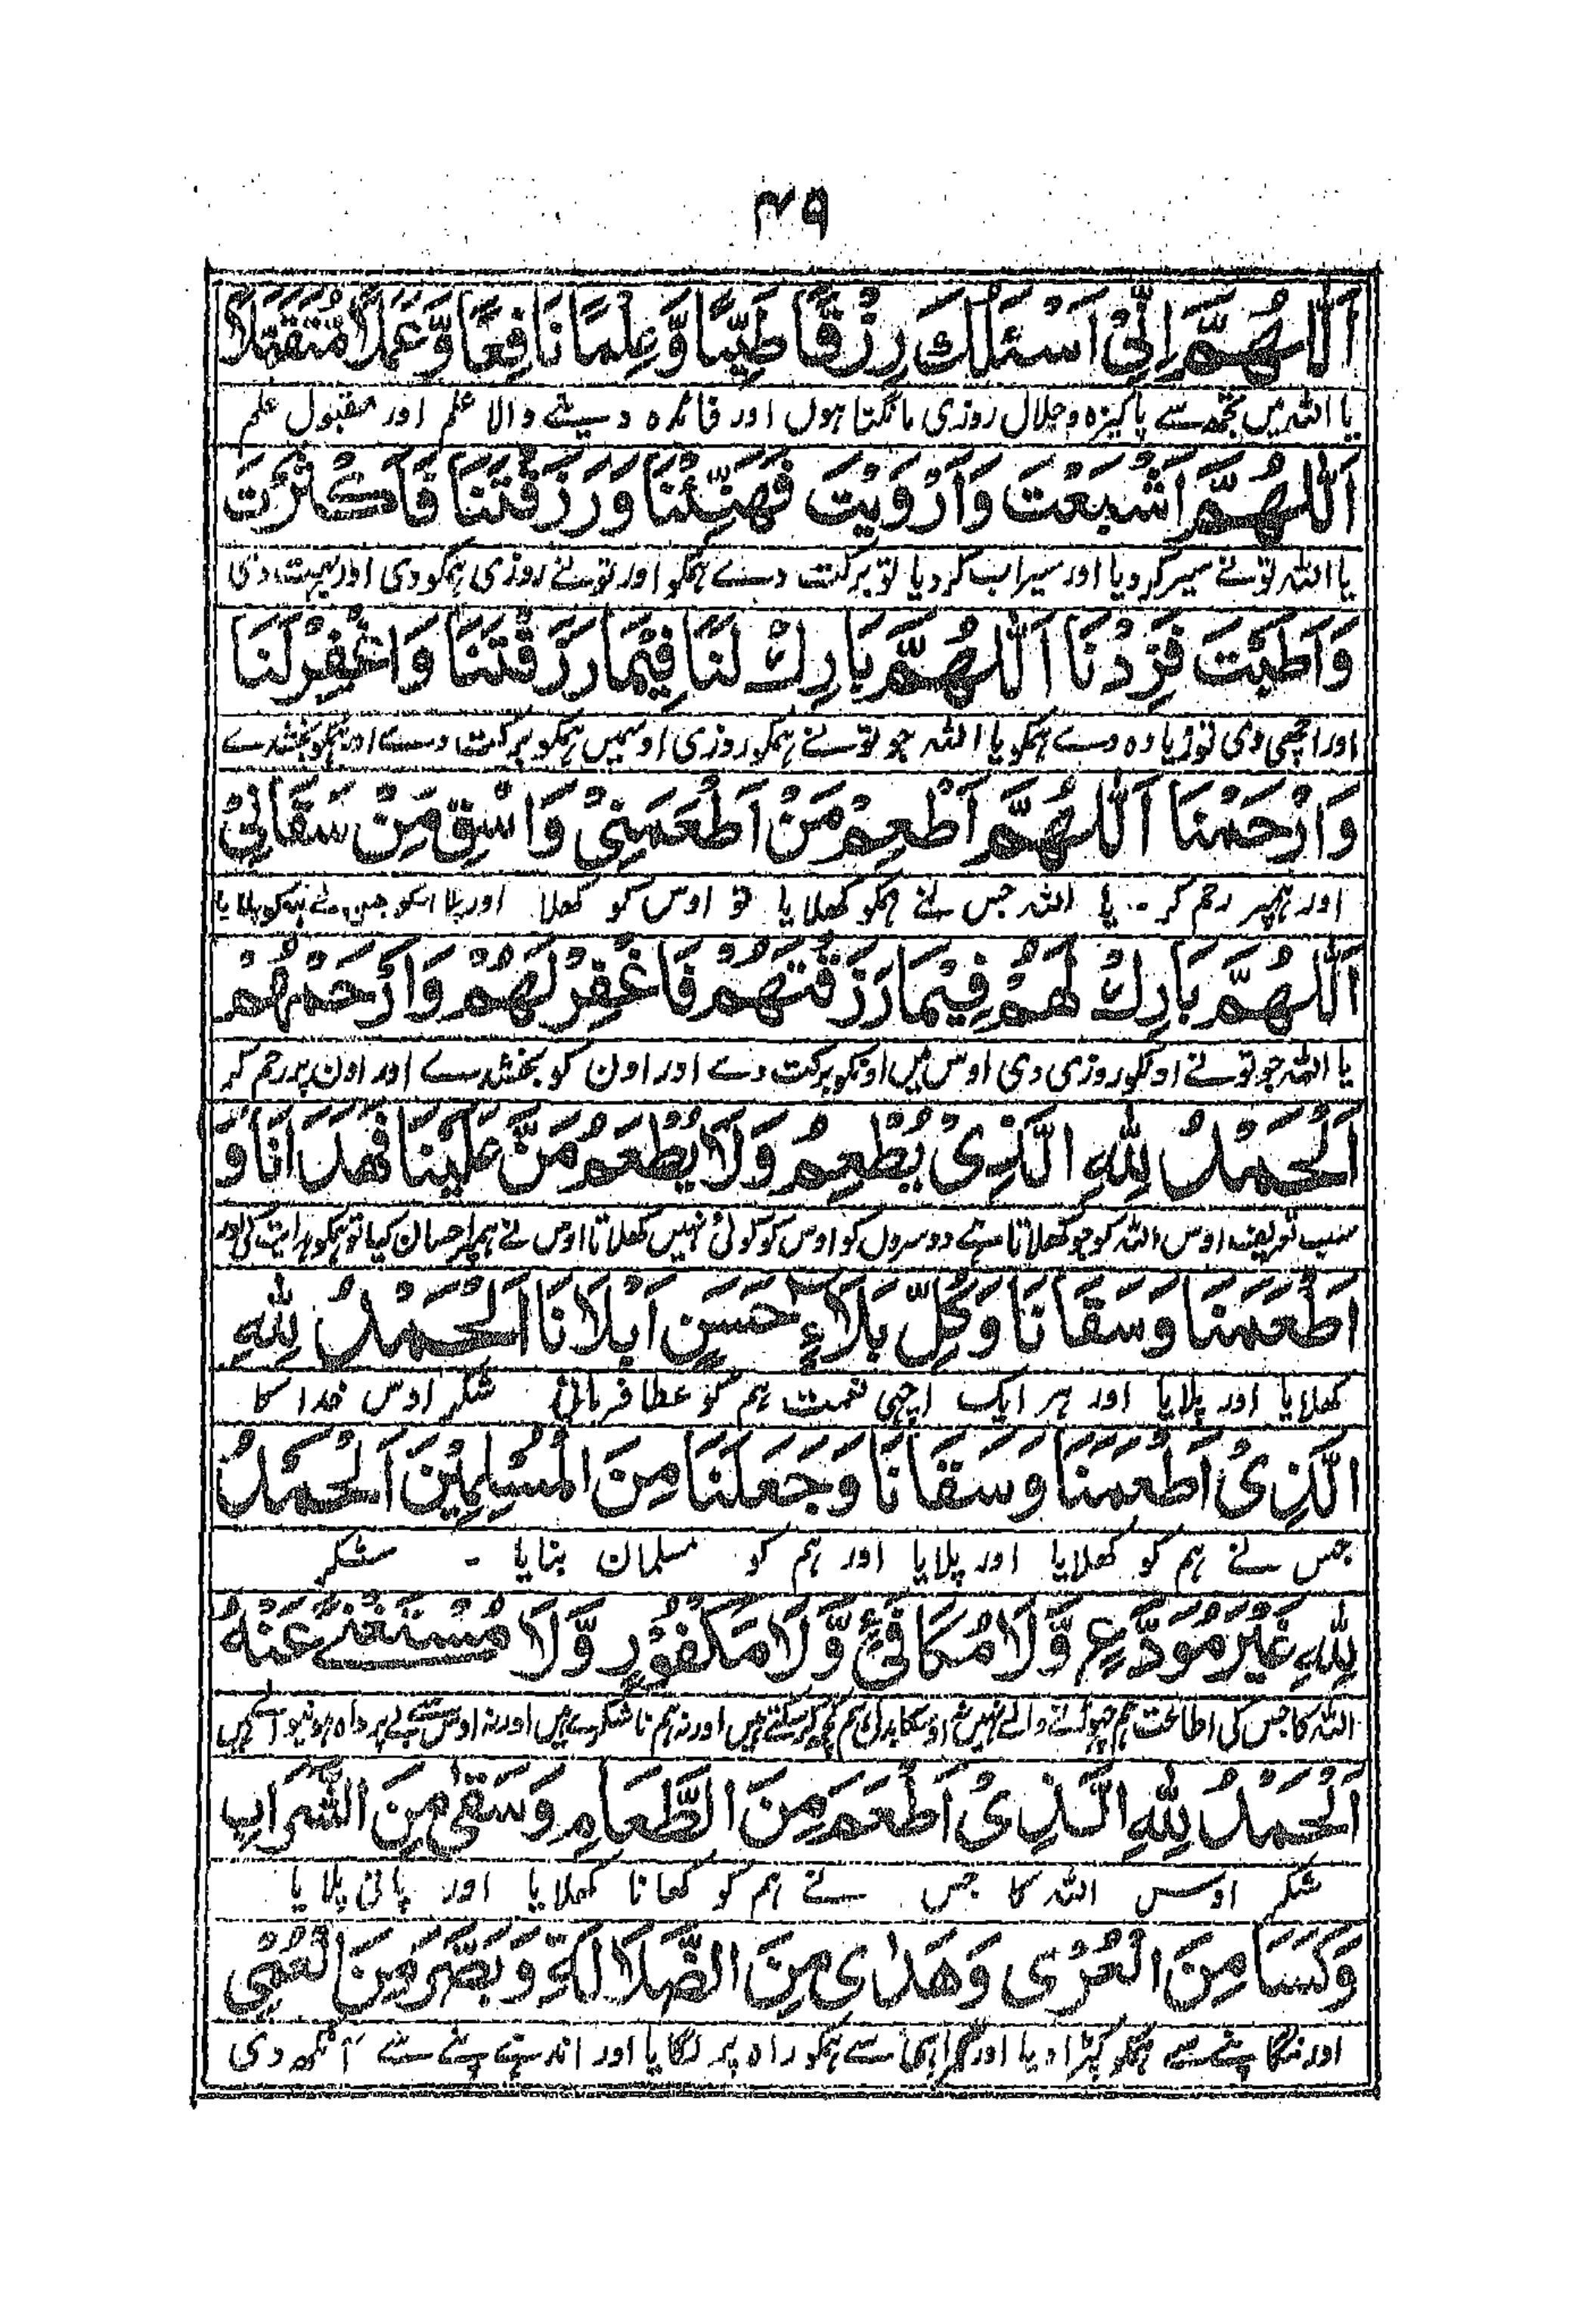 ۴۹
اَللّٰهُمَّ اِنِّیْ اَسْئَلُكَ رِزْقًا طَیِّبًا وَّعِلْمًا نَافِعًا وَّعَمَلًا مُتَقَبَّلًا
یا اللہ میں تجھ سے پاکیزہ و حلال روزی مانگتا ہوں اور فائدہ دینے والا علم اور مقبول علم
اَللّٰهُمَّ اَشْبَعْتَ وَاَرْوَیْتَ فَهَنِّئْنَا وَرَزَقْتَنَا فَاَكْثَرْتَ
یا اللہ تو نے سیر کر دیا اور سیراب کر دیا تو برکت دے ہمکو اور تو نے روزی ہمکو دی اور بہت دی
وَاَطَبْتَ فَزِدْنَا اَللّٰهُمَّ بَارِكْ لَنَا فِیْمَا رَزَقْتَنَا وَاغْفِرْلَنَا
اور اچھی دی تو زیادہ دے ہمکو یا اللہ جو تو نے ہمکو روزی اوسمیں ہمکو برکت دے اور ہمکو بخشدے
وَارْحَمْنَا اَللّٰهُمَّ اَطْعِمْ مَنْ اَطْعَمَنِیْ وَاسْقِ مَنْ سَقَانِیْ
اور ہمپر رحم کر ۔ یا اللہ جس نے ہمکو کھلایا تو اوس کو کھلا اور پلا اسکو جس نے ہمکو پلایا
اَللّٰهُمَّ بَارِكْ لَهُمْ فِیْمَا رَزَقْتَهُمْ فَاغْفِرْلَهُمْ وَارْحَمْهُمْ
یا اللہ جو تو نے اونکو روزی دی اوس میں اونکو برکت دے اور اون کو بخشدے اور اون پر رحم کر
اَلْحَمْدُ لِلّٰهِ الَّذِیْ یُطْعِمُ وَلَا یُطْعَمُ مَنَّ عَلَیْنَا فَهَدَانَا وَ
سب تعریف اوس اللہ کو جو کھلاتا ہے دوسروں کو اوس کو کوئی نہیں کھلاتا اوس نے ہمپر احسان کیا تو ہمکو ہدایت کی اور
اَطْعَمَنَا وَسَقَانَا وَكُلَّ بَلَاۤءٍ حَسَنٍ اَبْلَانَا اَلْحَمْدُ لِلّٰهِ
کھلایا اور پلایا اور ہر ایک اچھی نعمت ہم کو عطا فرمائی شکر اوس خدا کا
الَّذِیْ اَطْعَمَنَا وَسَقَانَا وَجَعَلَنَا مِنَ الْمُسْلِمِیْنَ اَلْحَمْدُ
جس نے ہم کو کھلایا اور پلایا اور ہم کو مسلمان بنایا ۔ شکر
لِلّٰهِ غَیْرَ مُوَدَّعٍ وَّلَا مُكَافِئٍ وَّلَا مَكْفُوْرٍ وَّلَا مُسْتَغْنًے عَنْهُ
اللہ کا جس کی اطاعت ہم چھوڑنے والے نہیں نہ اوسکا بدلہ ہم کچھ کر سکتے ہیں اور نہ ہم ناشکرے ہیں اور نہ اوس سے بے پرواہ ہونیوالے ہیں
اَلْحَمْدُ لِلّٰهِ الَّذِیْ اَطْعَمَ مِنَ الطَّعَامِ وَسَقٰی مِنَ الشَّرَابِ
شکر اوس اللہ کا جس نے ہم کو کھانا کھلایا اور پانی پلایا
وَكَسَا مِنَ الْعُرْیِ وَهَدٰی مِنَ الضَّلَالَةِ وَبَصَّرَ مِنَ الْعُمْیِ
اور ننگا پنے سے ہمکو کپڑا دیا اور گمراہی سے ہمکو راہ پر لگایا اور اندھے پنے سے آنکھ دی